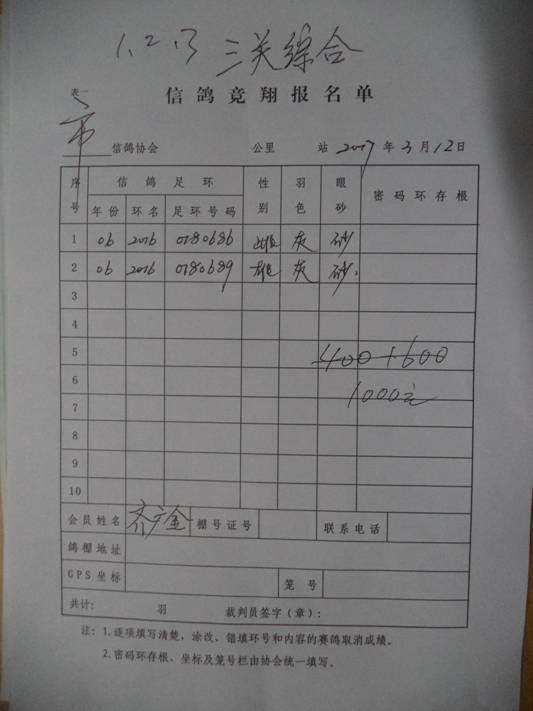 1.2.13 三关综合
表一
信鸽竞翔报名单
市 信鸽协会 公里 站 2017 年 3 月 12 日
序号 信鸽足环 性别 羽色 眼砂 密码环存根
年份 环名 足环号码
1 06 2016 0180686 雌 灰 砂
2 06 2016 0180689 雄 灰 砂.
3
4
5 400+600
6 1000元
7
8
9
10
会员姓名 齐广金 棚号证号 联系电话
鸽棚地址
GPS坐标 笼号
共计: 羽 裁判员签字(章):
注: 1.逐项填写清楚、涂改、错填环号和内容的赛鸽取消成绩。
2.密码环存根、坐标及笼号栏由协会统一填写。